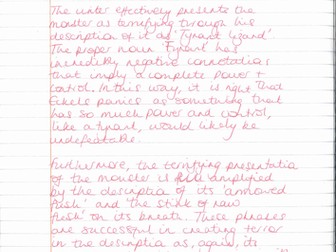 The writer effectively presents the
monster as terrifying through his
description of it as 'Tyrant lizard'
The proper noun 'Tyrant' has
incredibly negative connotations
that imply a complete power +
control. In this way, it is right that
Eckels panics as something that
has so much power and control,
like a tyrant, would likely be
undefeatable.
Furthermore, the terrifying presentation
of the monster is amplified
by the description of its 'armoured
flesh' and the stink of raw
flesh' on its breath. These phrases
are successful in creating terror
in the description as, again, its